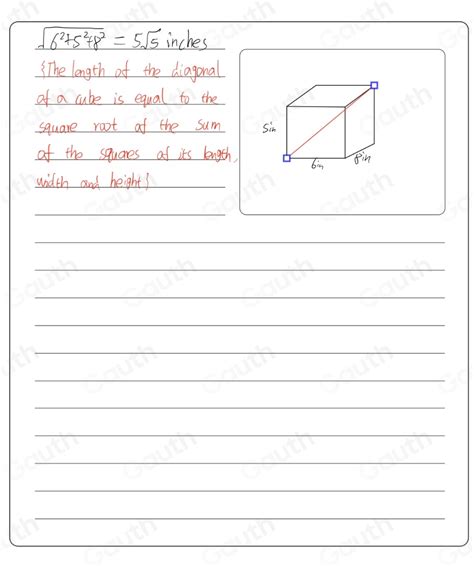 √(6²+5²+8²) = 5√5 inches
{The length of the diagonal
of a cube is equal to the
square root of the sum
of the squares of its length,
width and height}
5in
6in
8in
Gauth